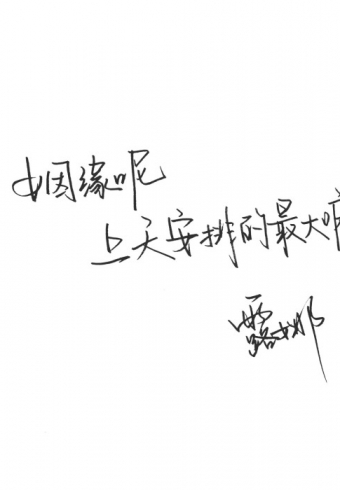 姻缘呢
上天安排的最大
露娜